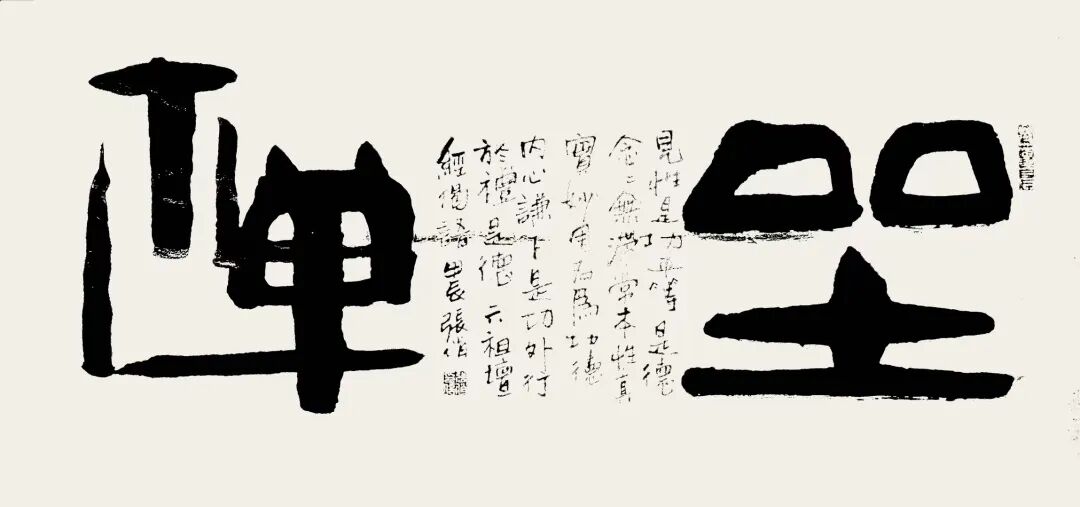 坐禪
見性是功平等是德
念〻無滯常本性真
實妙用名為功德
内心謙下是功外行
於禮是德 六祖壇
經偈語 農張